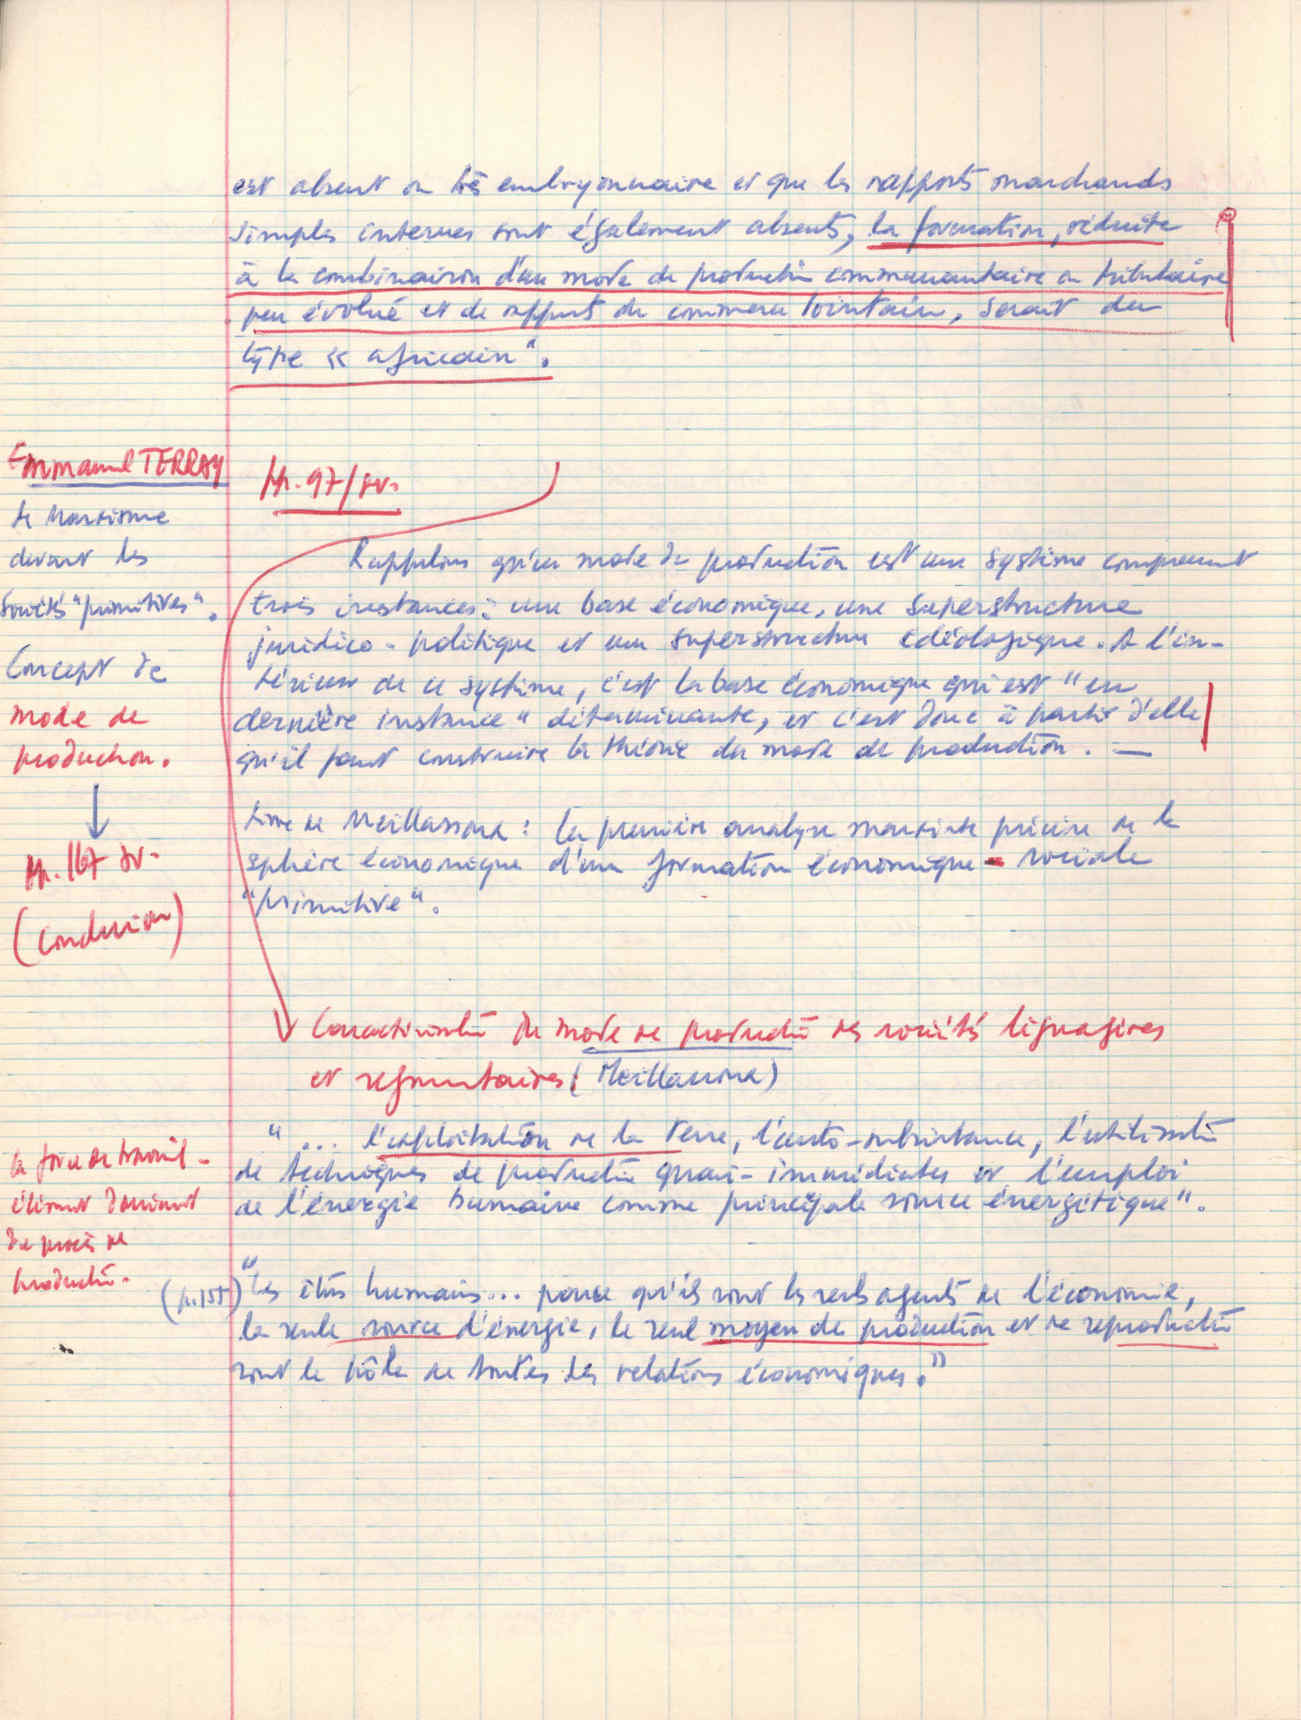 est absent ou très embryonnaire et que les rapports marchands
simples internes sont également absents, la formation, réduite
à la combinaison d'un mode de production communautaire ou tributaire
peu évolué et de rapports de commerce lointain, serait du
type « africain ".
Emmanuel TERRAY
Le Marxisme
devant les
Sociétés "primitives".
Concept de
mode de
production.
pp. 167 sv.
(Conclusion)
pp. 97/sv.
Rappelons qu'un mode de production est un système comprenant
trois instances : une base économique, une superstructure
juridico-politique et une superstructure idéologique. A l'in-
térieur de ce système, c'est la base économique qui est "en
dernière instance" déterminante, et c'est donc à partir d'elle
qu'il faut construire la théorie du mode de production. —
Livre de Meillassoux : la première analyse marxiste précise de la
sphère économique d'une formation économique - sociale
"primitive".
Caractéristiq du mode de productiō des sociétés lignagères
et segmentaires (Meillassoux)
"... l'exploitation de la terre, l'auto-subsistance, l'utilisatiō
de techniques de productiō quasi-immédiates et l'emploi
de l'énergie humaine comme principale source énergétique".
la force de travail -
élément dominant
du procès de
productiō.
(p.155) "les êtres humains... parce qu'ils sont les seuls agents de l'économie,
la seule source d'énergie, le seul moyen de production et de reproductiō
sont le pôle de toutes les relations économiques."